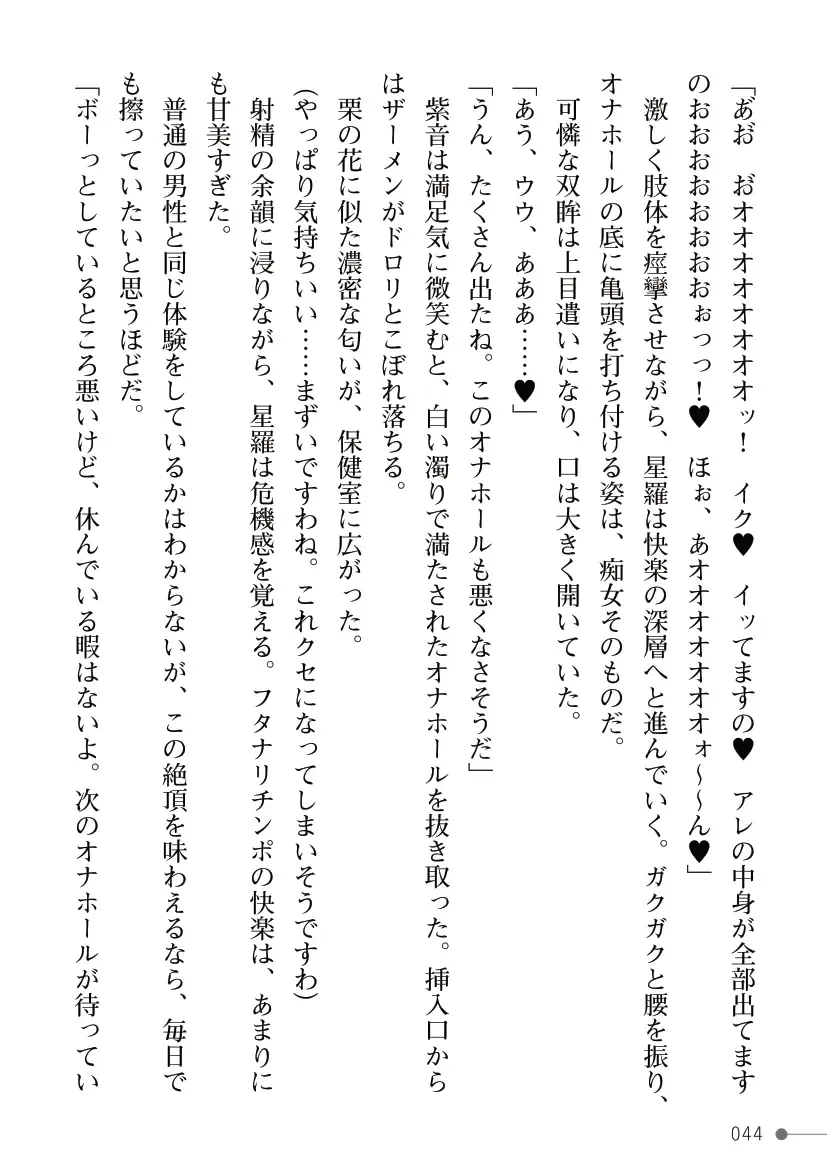 「あ゙お゙　お゙オオオオオオオオッ！　イク♥　イッてますの♥　アレの中身が全部出てます
のおおおおおおおおぉっっ！♥　ほぉ、あオオオオオオオォ～～ん♥」
激しく肢体を痙攣させながら、星羅は快楽の深層へと進んでいく。ガクガクと腰を振り、
オナホールの底に亀頭を打ち付ける姿は、痴女そのものだ。
可憐な双眸は上目遣いになり、口は大きく開いていた。
「あう、ウウ、あああ……♥」
「うん、たくさん出たね。このオナホールも悪くなさそうだ」
紫音は満足気に微笑むと、白い濁りで満たされたオナホールを抜き取った。挿入口から
はザーメンがドロリとこぼれ落ちる。
栗の花に似た濃密な匂いが、保健室に広がった。
(やっぱり気持ちいい……まずいですわね。これクセになってしまいそうですわ)
射精の余韻に浸りながら、星羅は危機感を覚える。フタナリチンポの快楽は、あまりに
も甘美すぎた。
普通の男性と同じ体験をしているかはわからないが、この絶頂を味わえるなら、毎日で
も擦っていたいと思うほどだ。
「ボーっとしているところ悪いけど、休んでいる暇はないよ。次のオナホールが待ってい
044